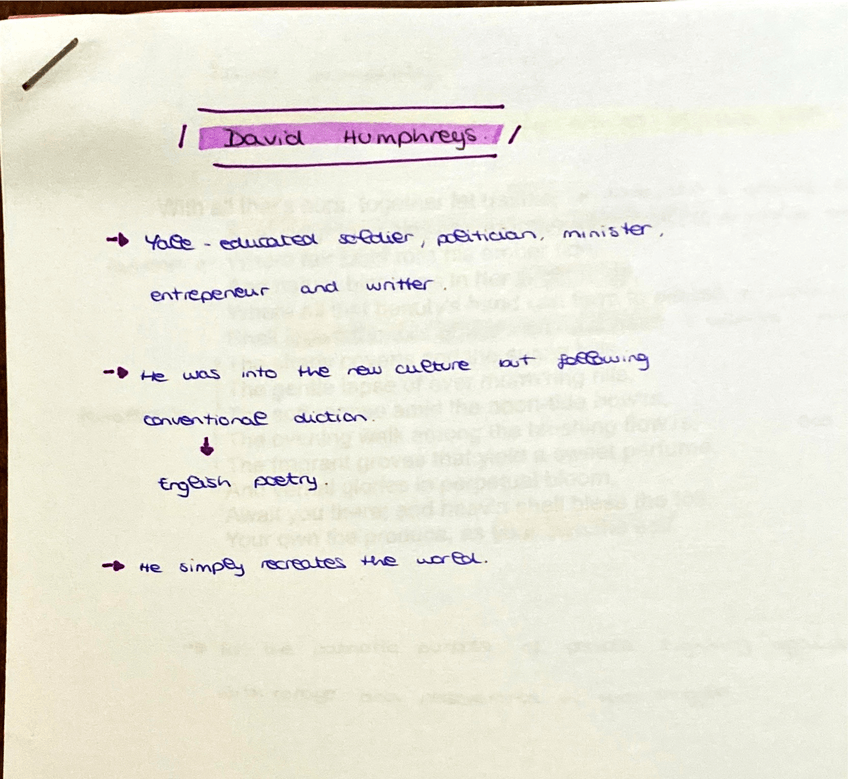 David Humphreys.
→ Yale - educated soldier, politician, minister,
entrepeneur and writter.
→ He was into the new culture but following
conventional diction.
↓
English poetry.
→ He simply recreates the world.